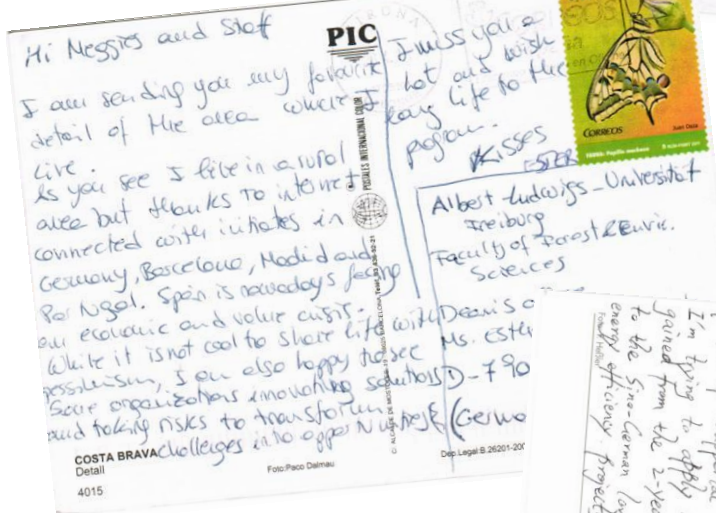 Hi Meggies and Staff
I am sending you my favourite
detail of the area where I
live.
As you see I live in a rural
area but thanks to internet
connected with initiates in
Germany, Barcelona, Madrid and
Portugal. Spain is nowadays facing
an economic and value crisis.
While it is not cool to share life with
possibilism, I am also happy to see
some organizations innovating solutions
and taking risks to transform
challenges into opportunities
COSTA BRAVA
Detall
4015
Foto: Paco Dalmau
PIC
POSTALES INTERNACIONAL COLOR
I miss you a
lot and wish
long life to the
program.
Kisses
ESTER
CORREOS
Albert-Ludwigs-Universität
Freiburg
Faculty of Forest & Envir.
Sciences
Deans o
Ms. Esth
D-790
(Germa
Dep. Legal B. 26201-200
I'm trying to apply
gained from the 2-yea
to the Sino-German
energy efficiency project